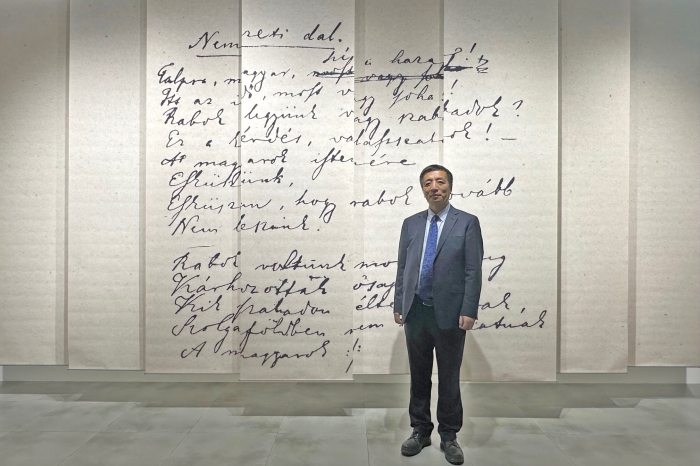 Nemzeti dal.
hí a haza!
Talpra, magyar, most vagy soha!
Itt az idő, most vagy soha!
Rabok legyünk vagy szabadok?
Ez a kérdés, válasszatok! –
A' magyarok istenére
Esküszünk,
Esküszünk, hogy rabok tovább
Nem leszünk.
Rabok voltunk
Kárhozottak
Kik szabadon
Szolgaföldben nem
A magyarok :/: